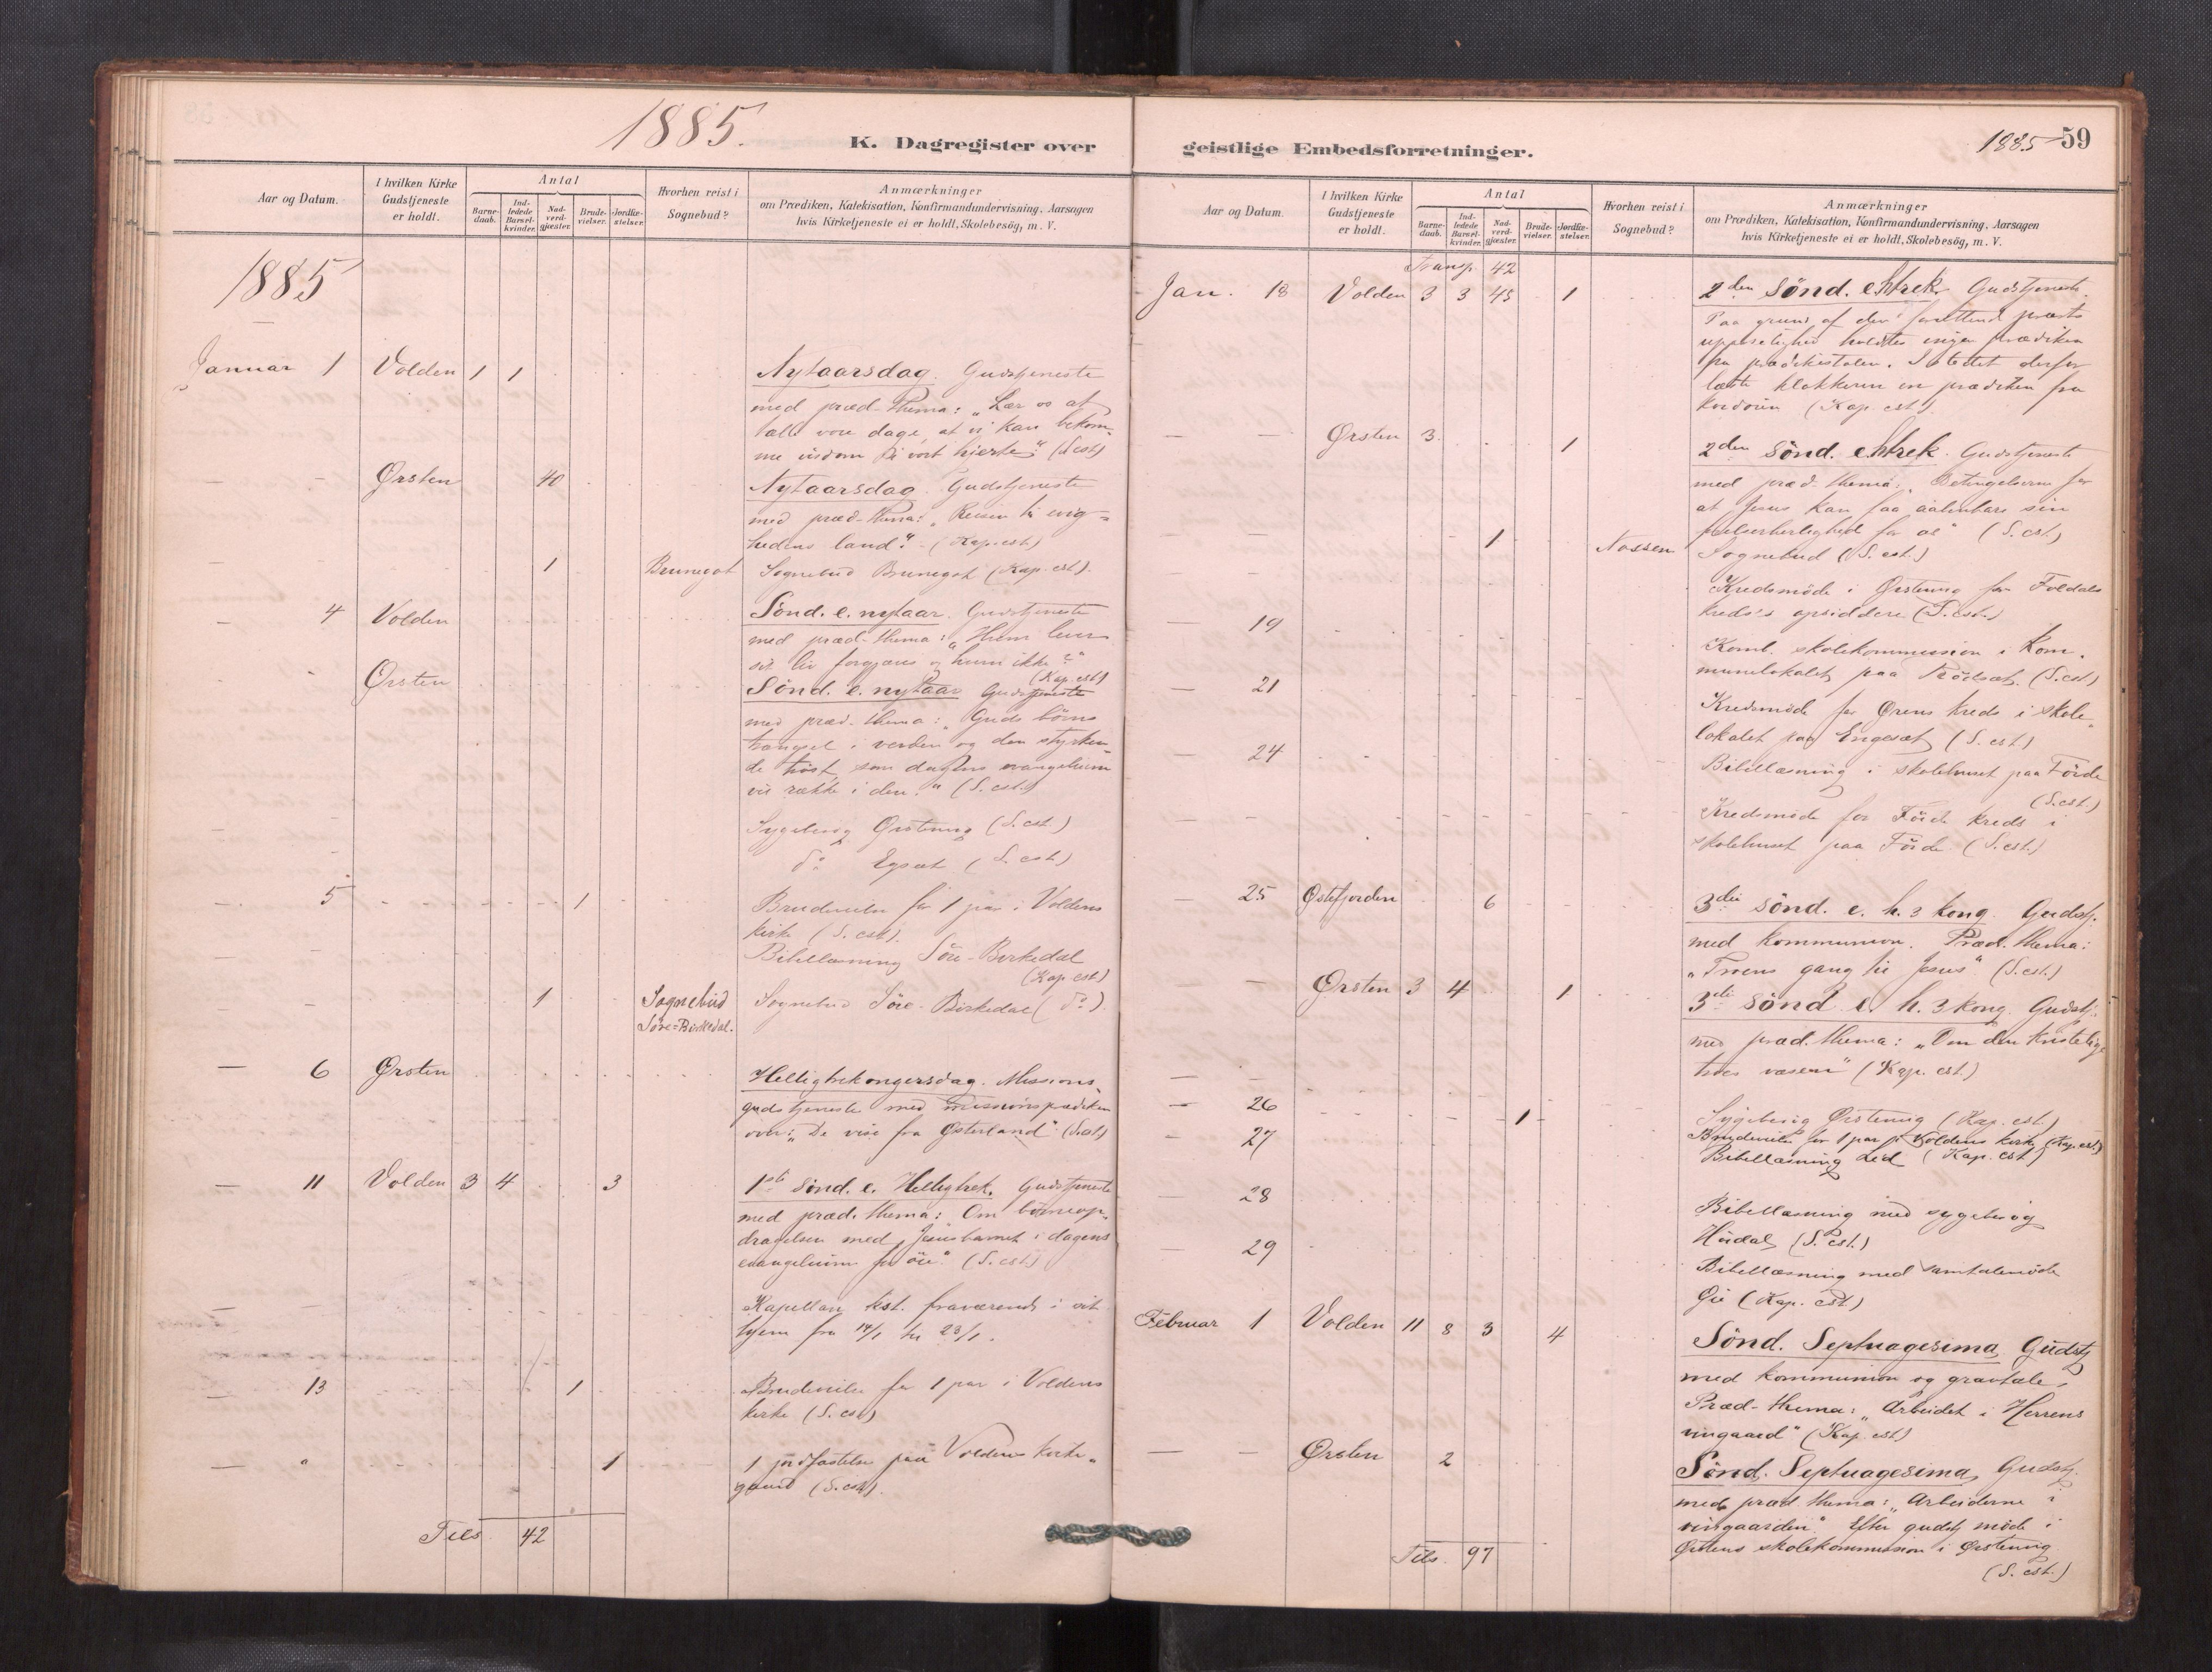 1885.
K. Dagregister over
Aar og Datum.
I hvilken Kirke
Gudstjeneste
er holdt.
Antal
Barne-
daab.
Ind-
ledede
Barsel-
kvinder.
Nad-
verd-
gjæster.
Brude-
vielser.
Jordfæ-
stelser.
Hvorhen reist i
Sognebud?
Anmærkninger
om Prædiken, Katekisation, Konfirmandundervisning, Aarsagen
hvis Kirketjeneste ei er holdt, Skolebesøg, m. V.
1885
Januar 1 Volden 1 1 Nytaarsdag. Gudstjeneste
med præd-thema: „Lær os at
tælle vore dage, at vi kan bekom-
me visdom i vort hjerte“. (S. cst)
— - Ørsten 40 Nytaarsdag. Gudstjeneste
med præd-thema: „Reisen til evig-
hedens land“. (Kap. cst)
1 Brunegot Sognebud Brunegot (Kap. cst).
— 4 Volden Sönd. e. nytaar. Gudstjeneste
med præd-thema: „Hvem lever
sit liv forgjæves og hvem ikke?“
(Kap. cst)
Ørsten Sönd. e. nytaar Gudstjeneste
med præd. thema: „Guds börns
trængsel i verden og den styrken-
de tröst, som dagens evangelium
vil række i den.“ (S. cst.)
Sygebesög Ørstenvig (S. cst.)
do Egsæt (S. cst.)
— 5 1 Brudevielse for 1 par i Voldens
kirke (S. cst).
Bibellæsning Söre-Birkedal
(Kap. cst)
1 Sognebud
Söre-Birkedal. Sognebud Söre-Birkedal (do).
— 6 Ørsten Helligtrekongersdag. Missions-
gudstjeneste med missionsprædiken
over: „De vise fra Østerland“ (S. cst)
— 11 Volden 3 4 3 1ste sönd. e. Helligtrek. Gudstjeneste
med præd. thema: Om börneop-
dragelsen med Jesusbarnet i dagens
evangelium for öie.“ (S. cst)
Kapellan kst. fraværende i sit
hjem fra 14/1 til 23/1.
— 13 1 Brudevielse for 1 par i Voldens
kirke (S. cst)
— " 1 1 jordfæstelse paa Voldens kirke-
gaard (S. cst).
Tils. 42
geistlige Embedsforretninger.
1885 59
Aar og Datum.
I hvilken Kirke
Gudstjeneste
er holdt.
Antal
Barne-
daab.
Ind-
ledede
Barsel-
kvinder.
Nad-
verd-
gjæster.
Brude-
vielser.
Jordfæ-
stelser.
Hvorhen reist i
Sognebud?
Anmærkninger
om Prædiken, Katekisation, Konfirmandundervisning, Aarsagen
hvis Kirketjeneste ei er holdt, Skolebesøg, m. V.
Transp. 42
Jan. 18 Volden 3 3 45 1 2den Sönd. e. htrek. Gudstjeneste.
Paa grund af den forrettende præsts
uppasselighed holdtes ingen prædiken
fra prædikestolen. I stedet derfor
læste klokkeren en prædiken fra
kordören (Kap. cst)
— — Ørsten 3 1 2den Sönd. e. htrek. Gudstjeneste
med præd-thema: „Betingelserne for
at Jesus kan faa aabenbare sin
frelserherlighed for os“ (S. cst)
— — 1 Nossen Sognebud (S. cst.)
Kredsmöde i Ørstenvig for Foldals
kreds's opsiddere (S. cst.)
— 19 Komb. skolekommission i kom-
munelokalet paa Rödsæt. (S. cst)
— 21 Kredsmöde for Ørens kreds i skole-
lokalet paa Engeset (S. cst)
— 24 Bibellæsning i skolehuset paa Förde
(S. cst.)
Kredsmöde for Förde kreds i
skolehuset paa Förde (S. cst.)
— 25 Østefjorden 6 3die sönd. e. h. 3 kong. Gudstj.
med kommunion. Præd. thema:
„Troens gang til Jesus“. (S. cst.)
— — Ørsten 3 4 1 3die sönd. e. h. 3 kong. Gudstj.
med præd. thema: „Om den kristelige
troes væsen“ (Kap. cst.)
— — Sygebesög Ørstenvig (Kap. cst.)
— 26 1 Brudevielse for 1 par i Voldens kirke (Kap. cst.)
— 27 Bibellæsning Lid (Kap. cst)
— 28 Bibellæsning med sygebesög
Hovdal (S. cst.)
— 29 Bibellæsning med samtalemöde
Øie (Kap. cst)
Februar 1 Volden 11 8 3 4 Sönd. Septuagesima Gudstj
med kommunion og gravtale.
Præd-thema: „Arbeidet i Herrens
vingaard“ (Kap. cst)
— — Ørsten 2 Sönd. Septuagesima, Gudstj.
med præd thema: „Arbeiderne i
vingaarden“. Efter gudstj möde i
Ørstens skolekommission i Ørstenvig
(S. cst.)
Tils. 97